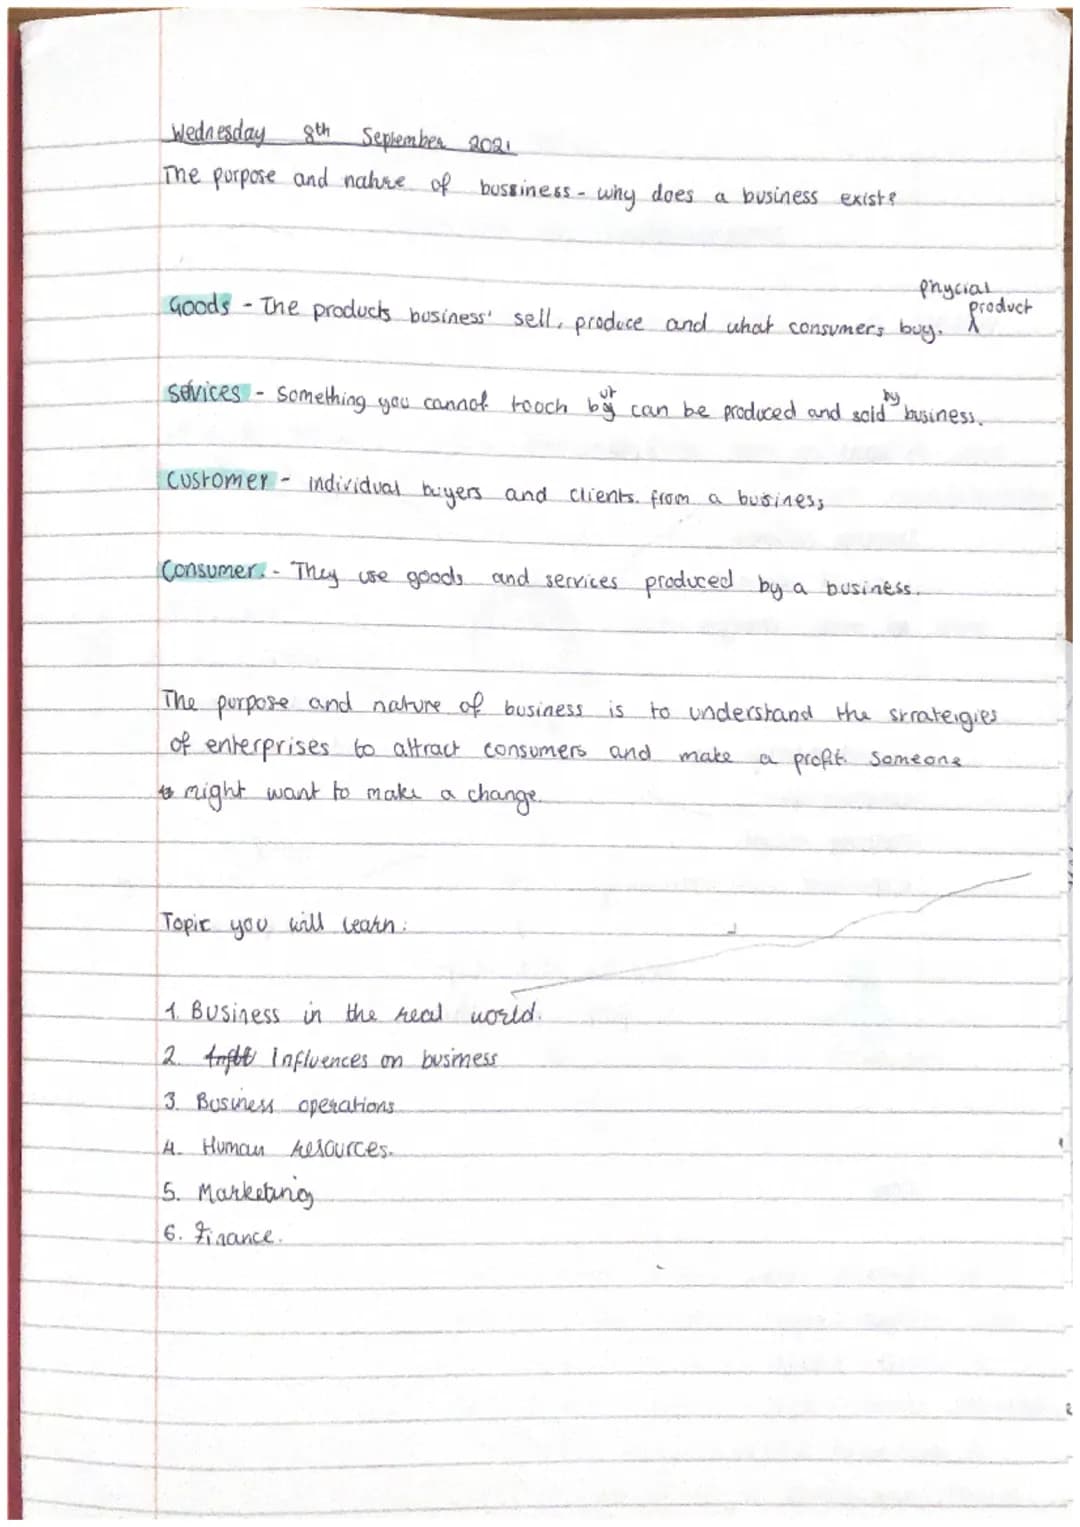 Wednesday 8th September 2021
The purpose and nature of bussiness - why does a business exist?
phycial
product
Goods - The products business' sell, produce and what consumers buy.
ut by
Sevices - Something you cannot tooch by can be produced and sold business.
Customer - individual buyers and clients. from a business
Consumer. - They use goods and services produced by a business.
The purpose and nature of business is to understand the strateigies
of enterprises to attract consumers and make a profit. Someone
might want to make a change.
Topic you will learn:
1. Business in the real world.
2. Influences on business
3. Business operations
4. Human resources.
5. Marketing
6. Finance.